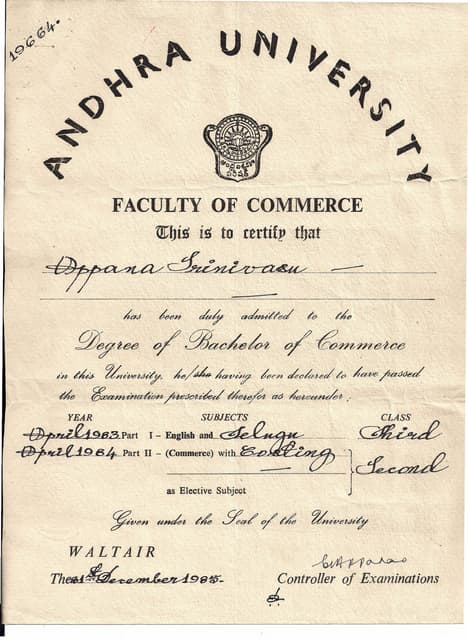 19664.
ANDHRA UNIVERSITY
FACULTY OF COMMERCE
This is to certify that
Oppana Srinivasu —
—
has been duly admitted to the
Degree of Bachelor of Commerce
in this University, he/she having been declared to have passed
the Examination prescribed therefor as hereunder:
YEAR SUBJECTS CLASS
April 1983 Part I - English and Telugu Third
April 1984 Part II - (Commerce) with Costing Second
—
as Elective Subject
Given under the Seal of the University
WALTAIR
The 21st December 1985-
Controller of Examinations